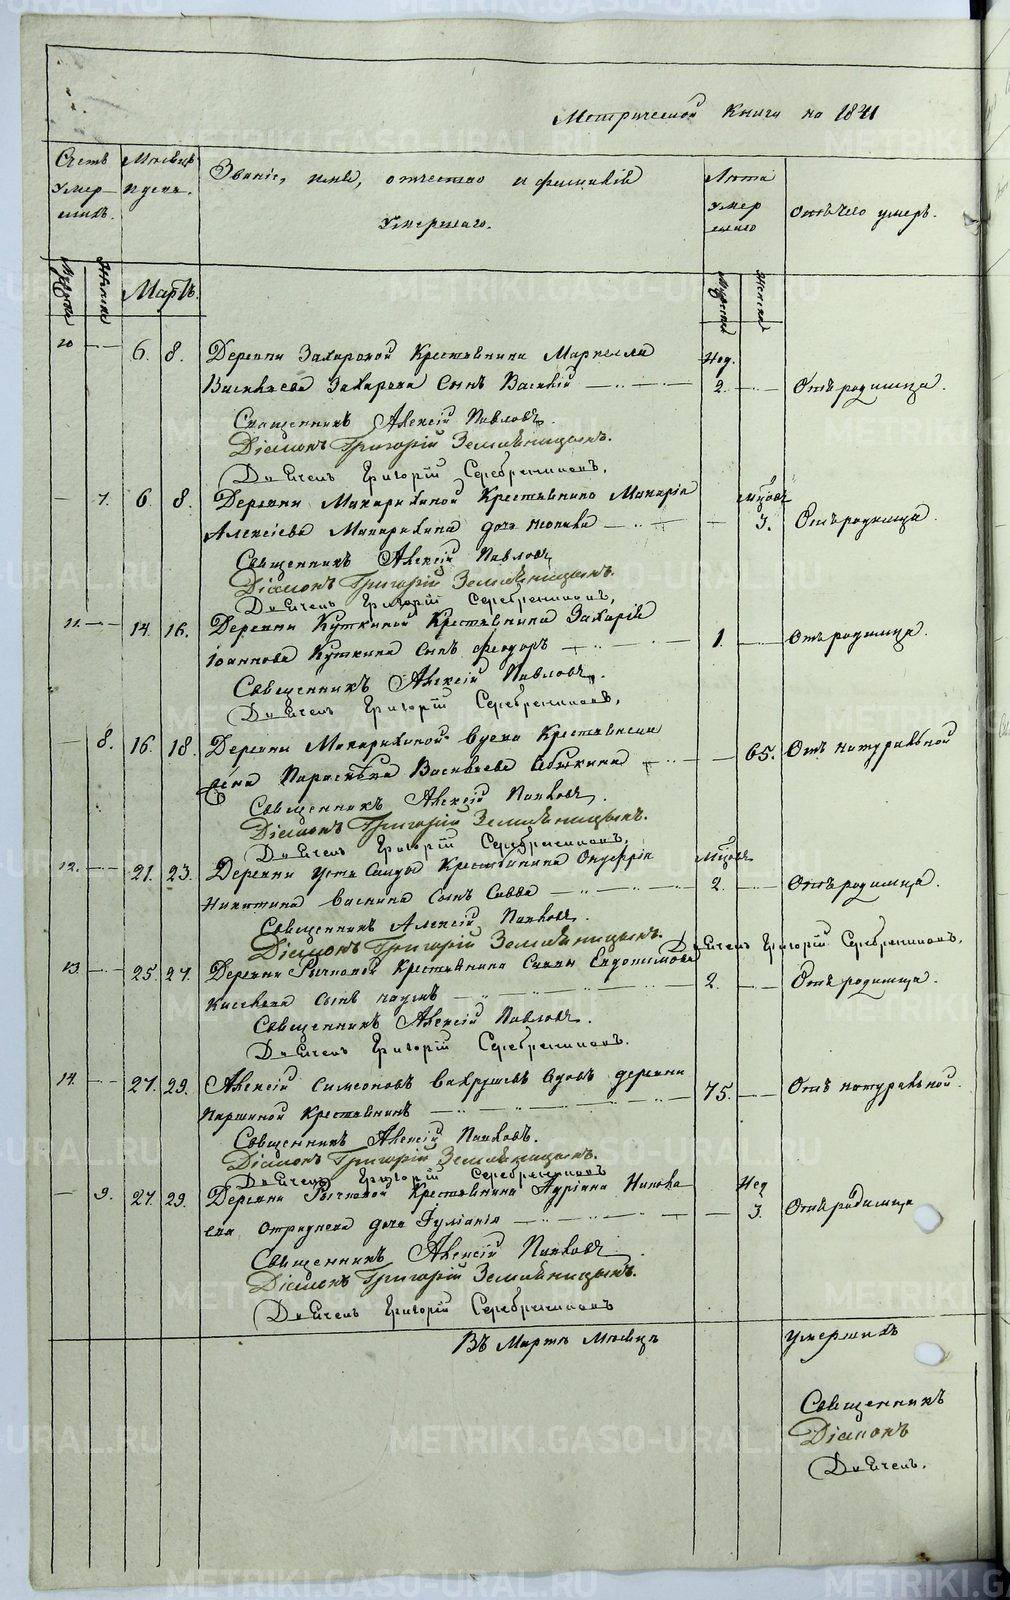 Метрической книги на 1841
Счетъ умер-шихъ.
Мѣсяцъ и день.
Званіе, имя, отчество и фамилія умершаго.
Лѣта умершаго
Отъ чего умеръ.
Мужска
Женска
Мартъ.
Мужска
Женска
10 6. 8. Деревни Захаровой Крестьянина Маркелла Нед.
Васильева Захарова сынъ Василій 2. Отъ родимца.
Священникъ Алексій Павловъ.
Діаконъ Григорій Земляницынъ.
Дьячекъ Григорій Серебренниковъ.
7. 6 8. Деревни Макарихиной Крестьянина Макарія мѣсяцъ
Алексіева Макарихина дочь 3. Отъ родимца.
Священникъ Алексій Павловъ
Діаконъ Григорій Земляницынъ.
Дьячекъ Григорій Серебренниковъ.
11. 14. 16. Деревни Куткиной Крестьянина Захарія
Іоаннова Куткина сынъ Феодоръ 1. Отъ родимца.
Священникъ Алексій Павловъ.
Дьячекъ Григорій Серебренниковъ.
8. 16. 18. Деревни Макарихиной вдова Крестьянская 65. Отъ натуральной
жена Параскева Васильева
Священникъ Алексій Павловъ.
Діаконъ Григорій Земляницынъ.
Дьячекъ Григорій Серебренниковъ.
12. 21. 23. Деревни Усть Саиды Крестьянина Онуфрія мѣсяцъ
Никитина сынъ Савва 2. Отъ родимца.
Священникъ Алексій Павловъ.
Діаконъ Григорій Земляницынъ. Дьячекъ Григорій Серебренниковъ.
13. 25. 27. Деревни Рычковой Крестьянина Саввы Евдокимова
Киселева сынъ Наумъ 2. Отъ родимца.
Священникъ Алексій Павловъ.
Дьячекъ Григорій Серебренниковъ.
14. 27. 29. Алексій Симеоновъ Вахрушевъ вдовъ деревни 75. Отъ натуральной.
Паршиной Крестьянинъ
Священникъ Алексій Павловъ.
Діаконъ Григорій Земляницынъ.
Дьячекъ Григорій Серебренниковъ
9. 27. 29. Деревни Рычковой Крестьянина Адріана Никола- Нед
ева Отраднова дочь Іуліанія 3. Отъ родимца
Священникъ Алексій Павловъ
Діаконъ Григорій Земляницынъ.
Дьячекъ Григорій Серебренниковъ
Въ Мартѣ Мѣсяцѣ умершихъ
Священникъ
Діаконъ
Дьячекъ.
METRIKI.GASO-URAL.RU